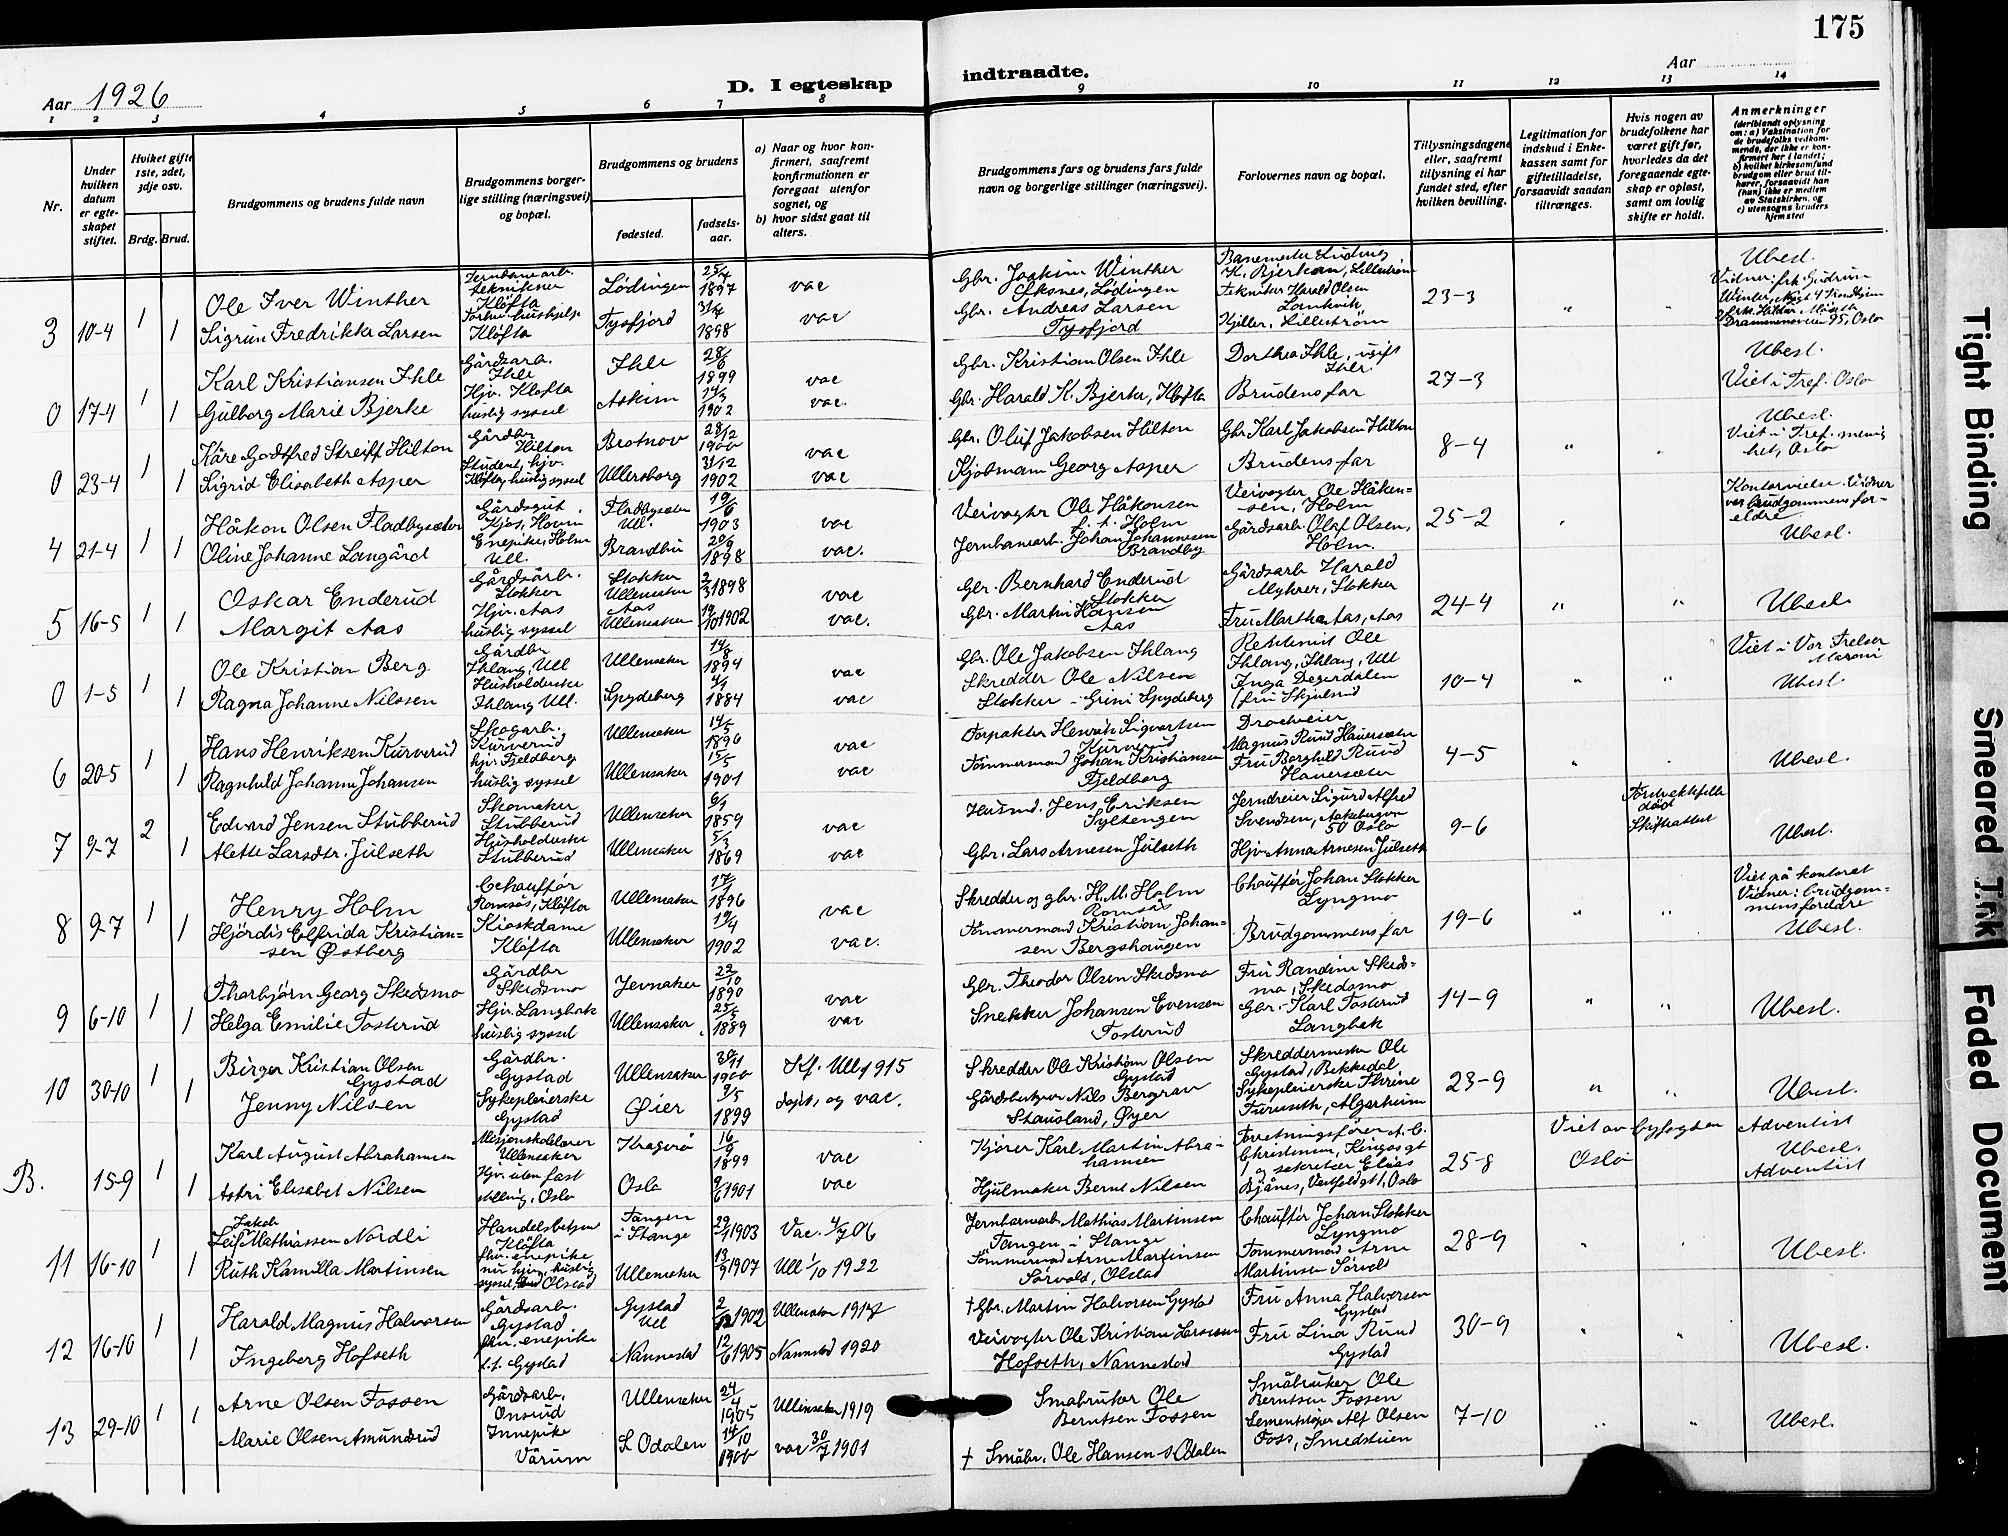 175
Aar 1926
D. I egteskap
indtraadte.
Aar
1 2 3 4 5 6 7 8 9 10 11 12 13 14
Nr.
Under hvilken datum er egteskapet stiftet.
Hvilket gifte 1ste, 2det, 3dje osv.
Brdg. Brud.
Brudgommens og brudens fulde navn
Brudgommens borgerlige stilling (næringsvei) og bopæl.
Brudgommens og brudens
fødested.
fødselsaar.
a) Naar og hvor konfirmert, saafremt konfirmationen er foregaat utenfor sognet, og
b) hvor sidst gaat til alters.
Brudgommens fars og brudens fars fulde navn og borgerlige stillinger (næringsvei).
Forlovernes navn og bopæl.
Tillysningsdagene eller, saafremt tillysning ei har fundet sted, efter hvilken bevilling.
Legitimation for indskud i Enkekassen samt for giftetilladelse, forsaavidt saadan tiltrænges.
Hvis nogen av brudefolkene har været gift før, hvorledes da det foregaaende egteskap er opløst, samt om lovlig skifte er holdt.
Anmerkninger
(deriblandt oplysning om: a) Vaksination for de brudefolks vedkommende, der ikke er konfirmert her i landet; b) hvilket kirkesamfund brudgom eller brud tilhører, forsaavidt han (hun) ikke er medlem av Statskirken, og c) utensogns bruders hjemsted
3 10-4 1 1
Ole Iver Winther
Sigrun Fredrikke Larsen
Jernbanearb. tekniker Kløfta
Kløfta
Lødingen 25/4 1897 vac
Tysfjord 31/4 1898 vac
Gbr. Joakim Winther Øksnes, Lødingen
Gbr. Andreas Larsen Tysfjord
Banemester Ludvig K. Bjerkan, Lillestrøm
Tekniker Harald Olsen Lankvik
Kjeller, Lillestrøm
23-3 " "
Ubesl.
Vidner: frk Gudrun
0 17-4 1 1
Karl Kristiansen Ihle
Gulborg Marie Bjerke
Gårdsarb. Ihle
Hjv. Kløfta huslig syssel
Ihle 28/6 1899 vac
Askim 14/3 1902 vac.
Gbr. Kristian Olsen Ihle
Gbr. Harald K. Bjerke, Kløfta
Dorthea Ihle, ugift Ihle.
Brudens far
27-3
Ubesl.
Viet i Tref. Oslo
0 23-4 1 1
Kåre Godtfred Streiff Hilton
Sigrid Elisabeth Asper
Gårdbr. Hilton
Student, hjv. Kløfta, huslig syssel
Brotnov 28/12 1900 vac
Ullersborg 31/12 1902 vac
Gbr. Oluf Jakobsen Hilton
Kjøbmann Georg Asper
Gbr. Karl Jakobsen Hilton
Brudens far
8-4 "
Ubesl.
Viet i Tref. menighet, Oslo
4 21-4 1 1
Håkon Olsen Fladbysæter
Oline Johanne Langård
Gårdsgut, Kjos, Hovin
Enepike, Holm Ull.
Fladbyseter Ull. 19/6 1903 vac
Brandbu 20/9 1898 vac.
Veivogter Ole Håkonsen f.t. Holm
Jernbanearb. Johan Johannesen Brandby
Veivogter Ole Håkensen, Holm
Gårdsarb. Olaf Olsen, Holm.
25-2 "
Kontorvielse. Vidner var brudgommens foreldre
Ubesl.
5 16-5 1 1
Oskar Enderud
Margit Aas
Gårdsarb. Stokker
Hjv. Aas huslig syssel
Stokker Ullensaker 2/3 1898 vac
Aas Ullensaker 19/10 1902 vac.
Gbr. Bernhard Enderud Stokker
Gbr. Martin Hansen Aas
Gårdsarb Harald Myhrer, Stokker
Fru Martha Aas, Aas
24-4 " "
Ubesl.
0 1-5 1 1
Ole Kristian Berg
Ragna Johanne Nilssen
Gårdbr Ihlang, Ull
Husholderske Ihlang Ull.
Ullensaker 14/8 1894 vac
Spydeberg 4/1 1884 vac
Gbr. Ole Jakobsen Ihlang
Skredder Ole Nilsen
Stokker - Grini Spydeberg
Ole Ihlang, Ihlang, Ull
Inga Degerdalen
10-4 " "
Viet i Vor Frelser
Ubesl.
6 20-5 1 1
Hans Henriksen Kurverud
Ragnhild Johanne Johansen
Skogarb. Kurverud
hjv. Fjeldberg huslig syssel
Ullensaker 14/5 1896 vac
Ullensaker 15/5 1901 vac
Forpakter Henrik Sigvartsen Kurverud
Tømmermand Johan Kristiansen Fjeldberg
Magnus Ruud Hauersæter
Fru Borghild Ruud Hauersæter
4-5 " "
Ubesl.
7 9-7 2 1
Edvard Jensen Stubberud
Alette Larsdtr. Julseth
Skomaker Stubberud
Husholderske Stubberud
Ullensaker 6/1 1859 vac
Ullensaker 5/3 1869 vac
Husmd. Jens Eriksen Syltengen
Gbr. Lars Arnesen Julseth
Jerndreier Sigurd Alfred Svendsen, Aakebergvn 50 Oslo
Hjv Anna Arnesen Julseth
9-6
død
Skifteattest
Ubesl.
8 9-7 1 1
Henry Holm
Hjördis Elfrida Kristiansen Østberg
Chauffør Romsås, Kløfta
Kioskdame Kløfta
Ullensaker 17/1 1896 vac
Ullensaker 19/4 1902 vac.
Skredder og gbr. H.M. Holm Romsås
Tømmermand Kristian Johansen Bergshaugen
Chauffør Johan Stokker Lyngmo
Brudgommens far
19-6 " "
Viet på kontoret
Vidner: brudgommens foreldre
Ubesl.
9 6-10 1 1
Thorbjörn Georg Skedsmo
Helga Emilie Fosterud
Gårdbr Skedsmo
Hjv. Langbak huslig syssel
Jevnaker 22/10 1890 vac
Ullensaker 25/5 1889 vac
Gbr. Theodor Olsen Skedsmo
Snekker Johansen Evensen Fosterud
Fru Randine Skedsmo, Skedsmo
Gbr. Karl Fosterud Langbak
14-9 " "
Ubesl.
10 30-10 1 1
Birger Kristian Olsen Gystad
Jenny Nilsen
Gårdbr. Gystad
Sykepleierske Gystad
Ullensaker 30/11 1900 Kf. Ull 1915
Øier 9/5 1899 døpt, og vac.
Skredder Ole Kristian Olsen Gystad
Gårdsbestyrer Nils Bergvan Stausland, Øyer
Skreddermester Ole Gystad, Bekkedal
Sykepleierske Thrine Furuseth, Algarheim
23-9 " "
Ubesl.
B. 15-9 1 1
Karl August Abrahamsen
Astri Elisabet Nilsen
Misjonskolelærer Ullensaker
Hjv. uten fast stilling, Oslo
Kragerø 16/9 1899 vac
Oslo 9/6 1901 vac
Kjører Karl Martin Abrahamsen
Hjulmaker Bernt Nilsen
Forretningsfører A. C. Christensen, Kingosgt 1 og sekretær Elias Bjånes, Vestfoldgt 1, Oslo
25-8
Viet av byfogden
Oslo
Adventist
Ubesl.
Adventist
11 16-10 1 1
Jakob
Leif Mathiassen Nordli
Ruth Kamilla Martinsen
Handelsbetjen Kløfta
fhv. enepike nu hjv, huslig syssel, Olstad
Tangen i Stange 29/1 1903 Vac. 4/7 06
Ullensaker 13/9 1907 Ull 1/10 1922
Jernbanearb. Mathias Martinsen Tangen i Stange
Tømmermand Arne Martinsen Sørvold, Olstad
Chauffør Johan Stokker Lyngmo
Tømmermand Arne Martinsen Sørvold
28-9 " "
Ubesl.
12 16-10 1 1
Harald Magnus Halvorsen
Ingeberg Hofseth
Gårdsarb. Gystad
fhv. enepike f.t. Gystad
Gystad Ull 2/12 1902 Ullensaker 1917
Nannestad 12/6 1905 Nannestad 1920
† Gbr. Martin Halvorsen Gystad
Veivogter Ole Kristian Larssen Hofseth, Nannestad
Fru Anna Halvorsen Gystad
Fru Lina Ruud Gystad
30-9 " "
Ubesl.
13 29-10 1 1
Arne Olsen Fossen
Marie Olsen Amundrud
Gårdsarb. Onsrud
Innepike Vårum
Ullensaker 24/4 1905 Ullensaker 1919
S. Odalen 14/10 1900 vac 30/7 1901
Småbruker Ole Berntsen Fossen
† Småbr. Ole Hansen S. Odalen
Småbruker Ole Berntsen Fossen
Sementstøper Alf Olsen Foss, Smedstuen
7-10 " "
Ubesl.
Tight Binding
Smeared Ink
Faded Document